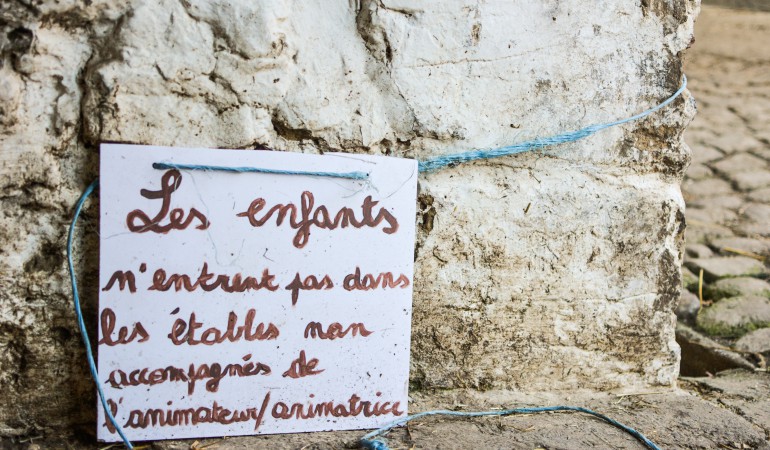 Les enfants
n'entrent pas dans
les étables non
accompagnés de
l'animateur/animatrice